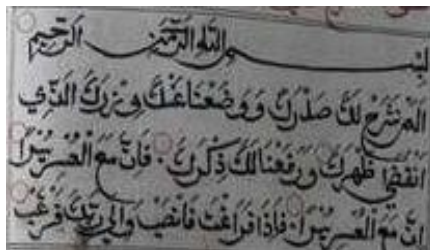 بسم الله الرحمن الرحيم
الم نشرح لك صدرك ووضعنا عنك وزرك الذي
انقض ظهرك ورفعنا لك ذكرك فان مع العسر يسرا
ان مع العسر يسرا فاذا فراغت فانصب والى ربك فرغب